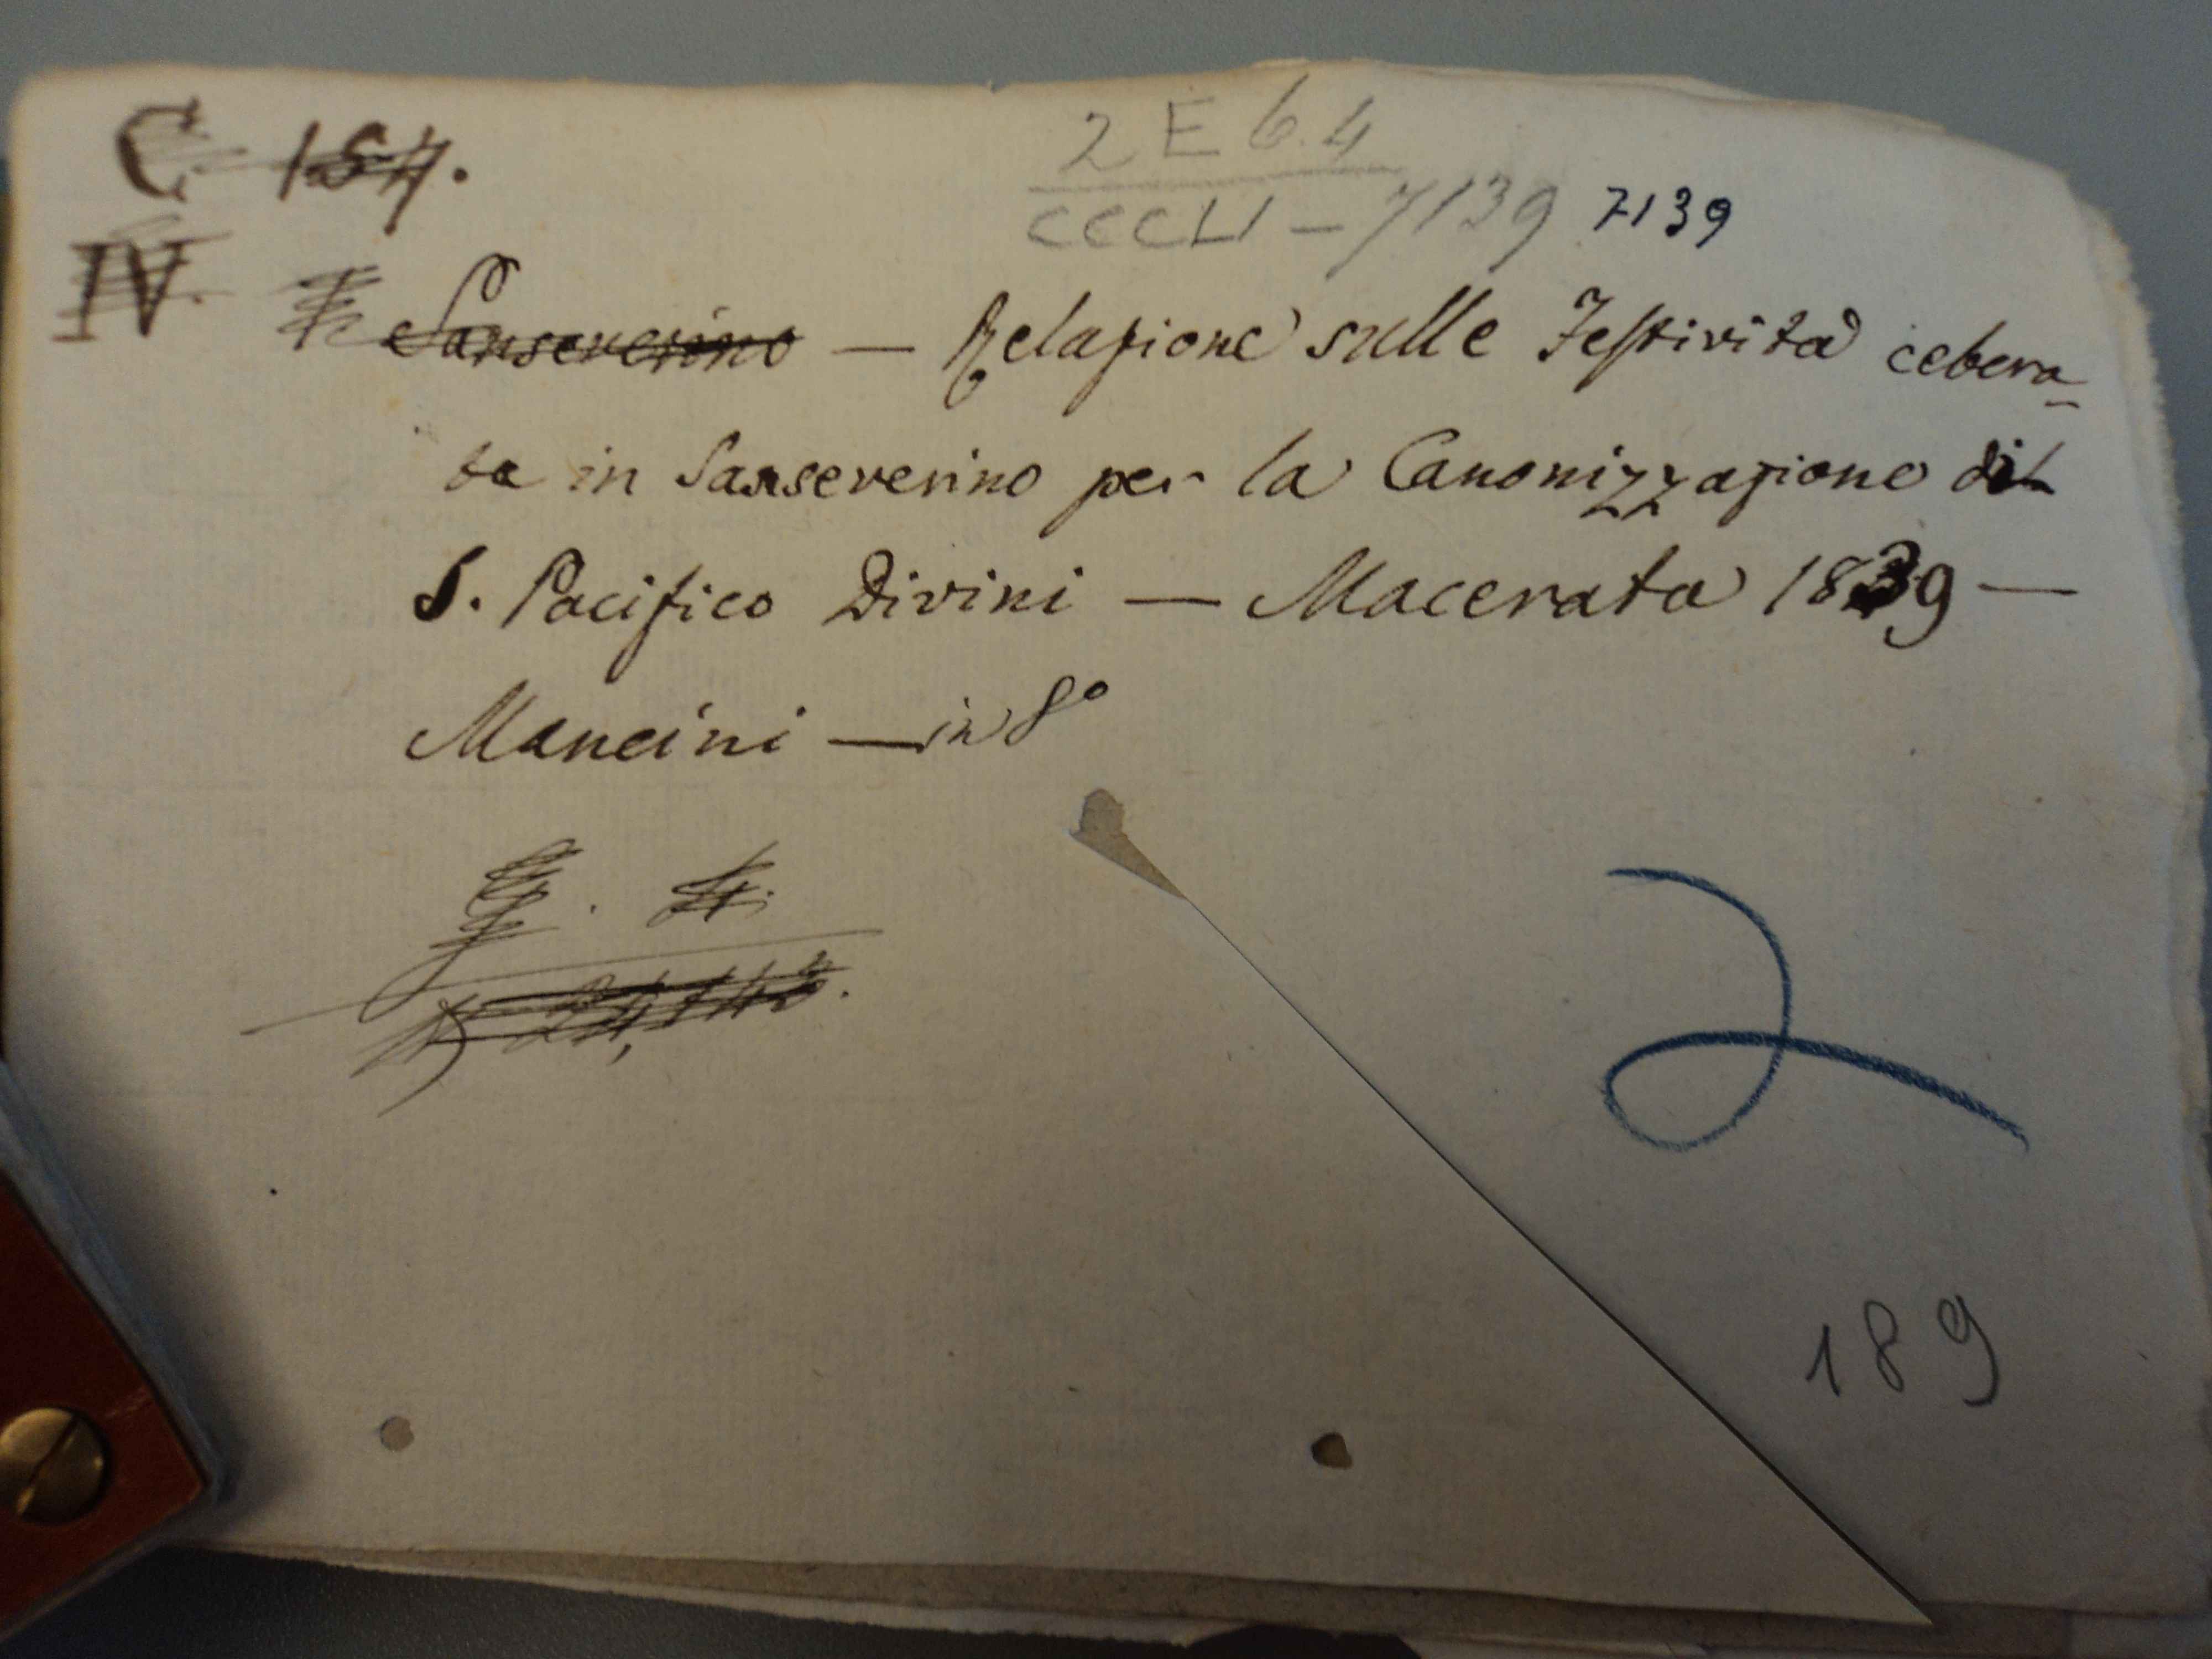 C 154.
2 E 6.4
CCCLI - 7139 7139
IV.
Sanseverino — Relazione sulle Festività cebera-
te in Sanseverino per la Canonizzazione di
S. Pacifico Divini — Macerata 1839 —
Mancini — in 8º
2
189